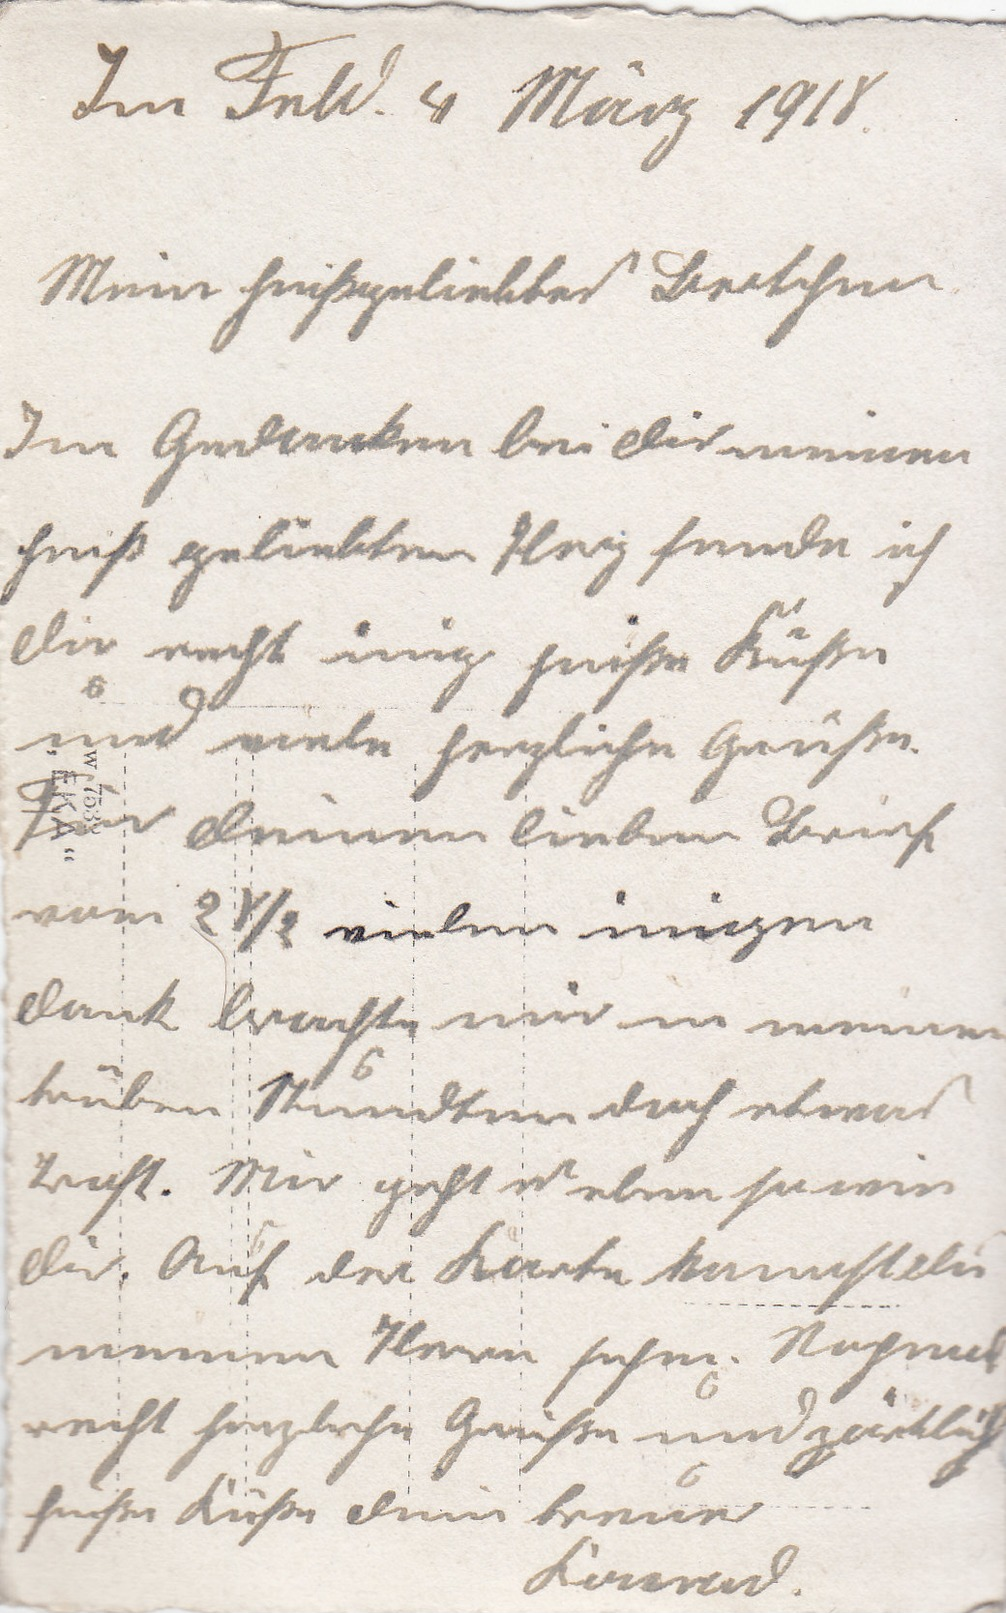 Im Feld. 4 März 1918.
Mein heißgeliebtes Bertchen
Im Gedanken bei dir meinen
heiß geliebten Herz sende ich
dir recht inig heiße Küße
und viele herzliche Grüße.
Für deinen lieben Brief
vom 28/2 vielen inigen
dank brachte mir in meinen
trüben Stundten doch etwas
Trost. Mir geht es eben so wie
dir. Auf der Karte kannst du
meinen Herrn sehen. Nochmals
recht herzliche Grüße und zärtlich
heiße Küße dein treuer
Konrad.
W 7532
"EKA"